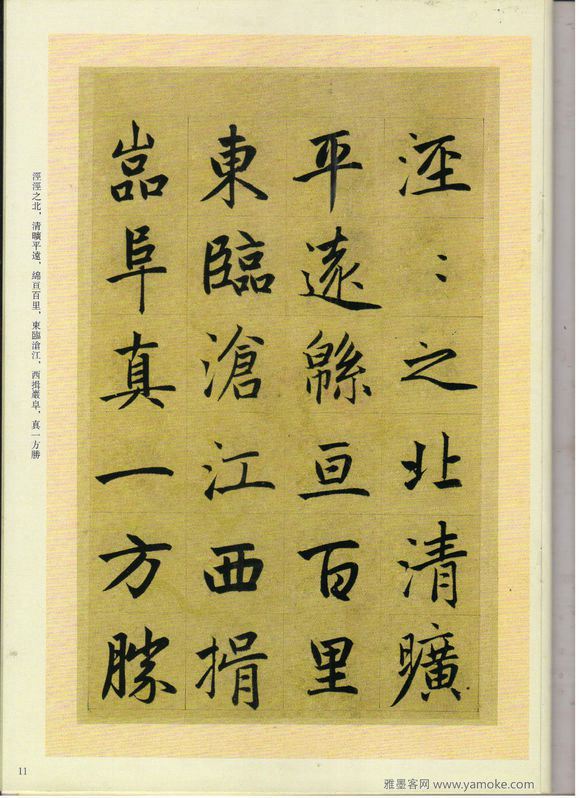 涇〻之北清曠
平遠緜亘百里
東臨滄江西揖
嵓阜真一方勝
涇涇之北，清曠平遠，綿亘百里，東臨滄江，西揖巖阜，真一方勝
11
雅墨客网 www.yamoke.com